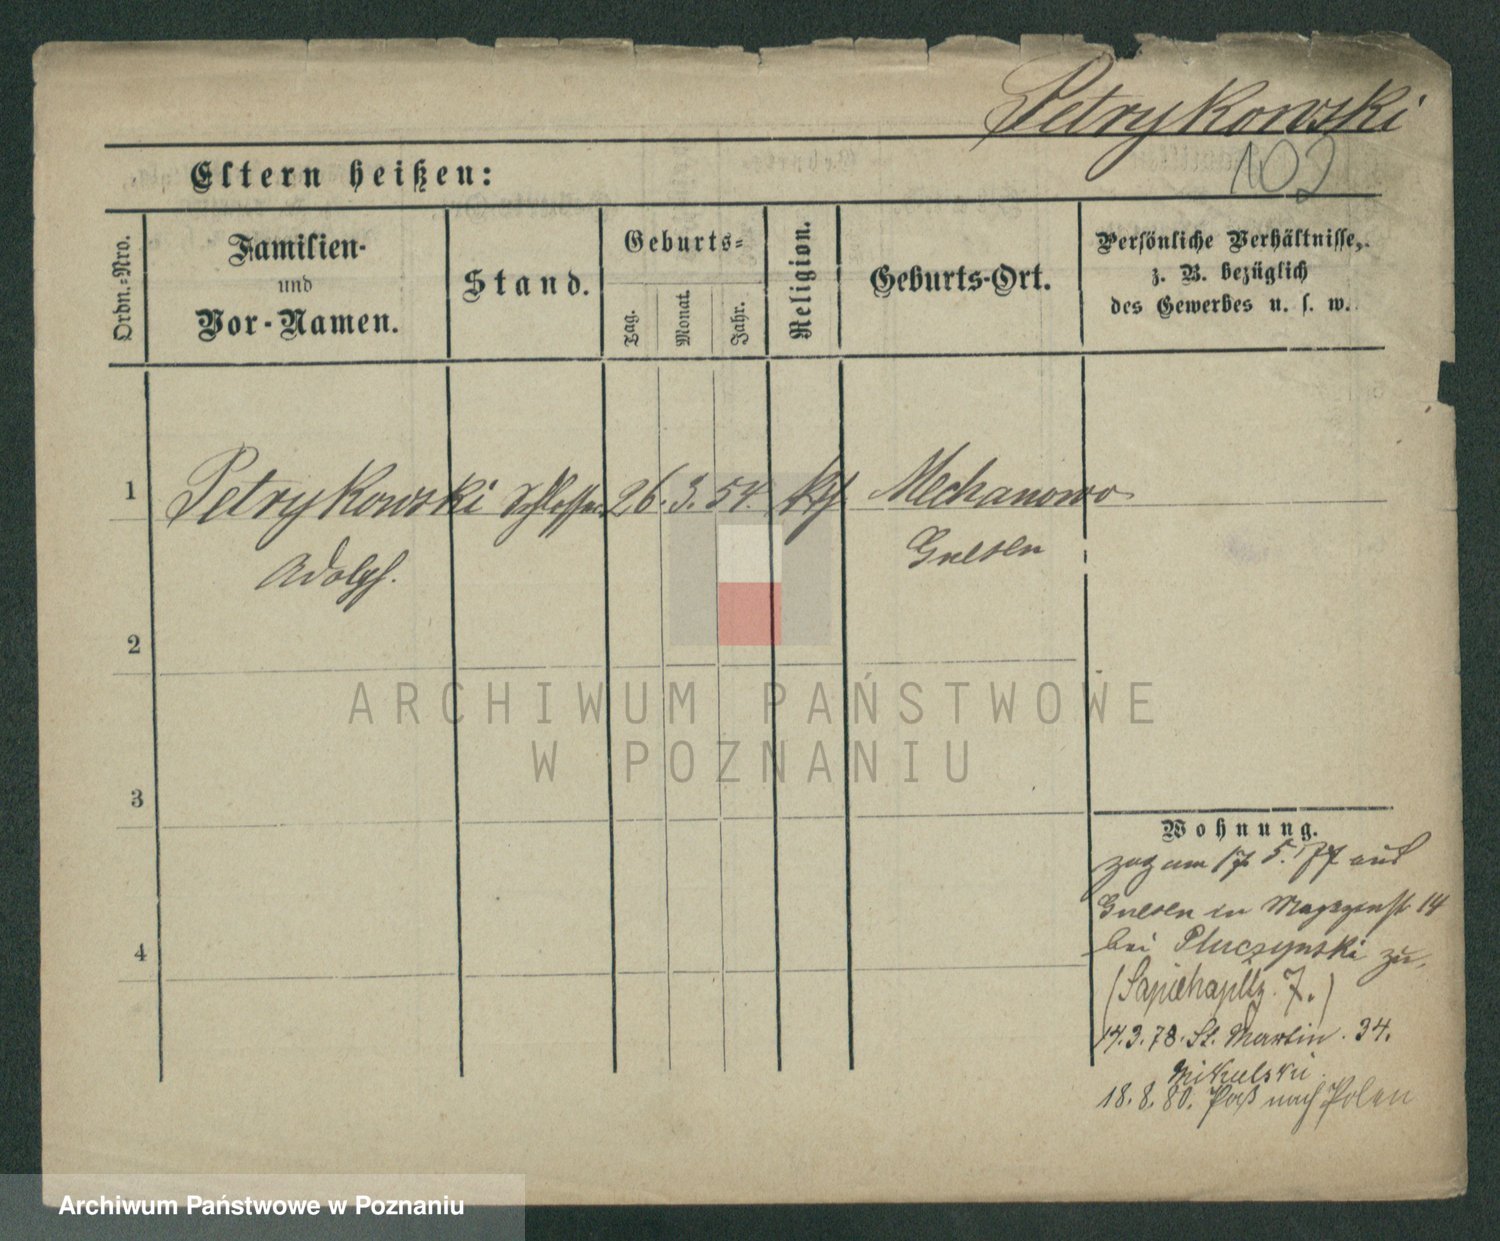 Petrykowski
102
Eltern heißen:
Ordn.=Nro.
Familien-
und
Vor-Namen.
Stand.
Geburts=
Tag.
Monat.
Jahr.
Religion.
Geburts-Ort.
Persönliche Verhältnisse,
z. B. bezüglich
des Gewerbes u. s. w.
1 Petrykowski Schlosser 26. 3. 54. kth Mechanowo
Adolph. Gnesen
2
ARCHIWUM PAŃSTWOWE
W POZNANIU
3
Wohnung.
zog am 17. 5. 77 aus
Gnesen in Magazinst 14
bei Pluczynski zu.
(Sapiehapltz. 7.)
14. 3. 78. St. Martin. 34.
4
Mikulski.
18. 8. 80. Paß nach Polen
Archiwum Państwowe w Poznaniu